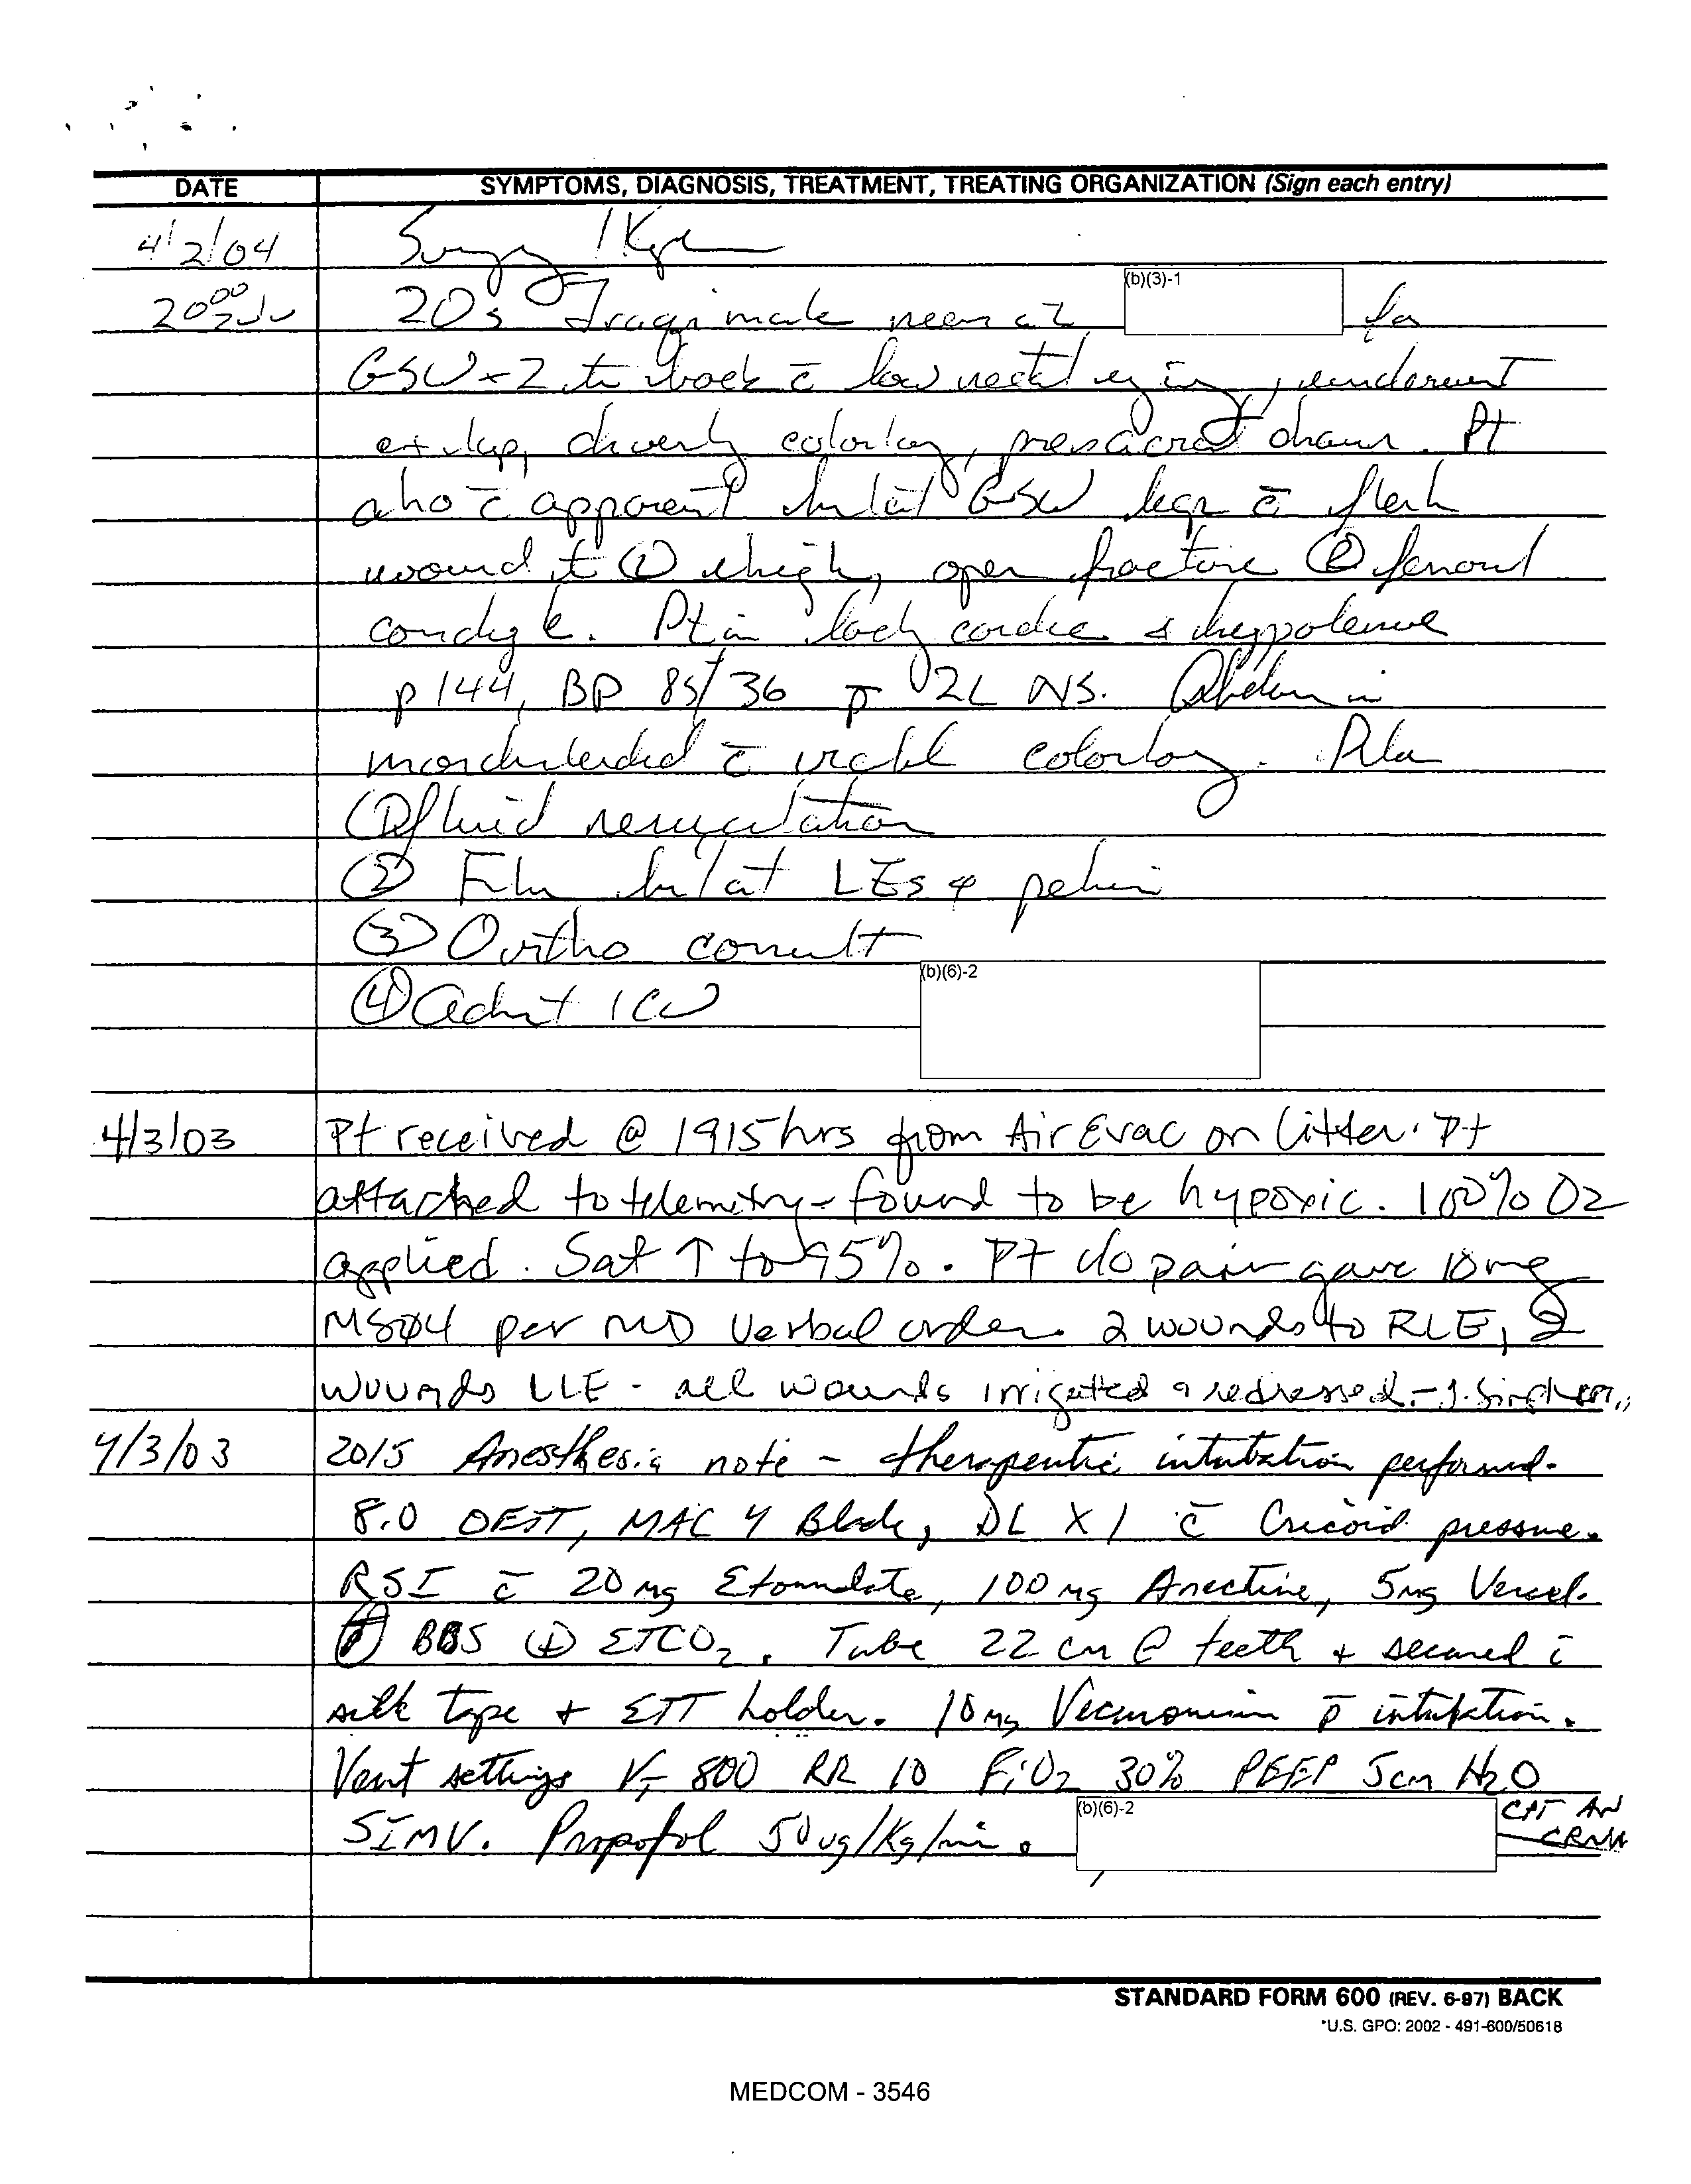 DATE SYMPTOMS, DIAGNOSIS, TREATMENT, TREATING ORGANIZATION (Sign each entry)
4/2/04 Surgery
2000 20s Iraqi male seen at (b)(3)-1 for
GSW x 2 to back c̄ low rectal injury, underwent
ex lap, diverting colostomy, presacral drain. Pt
also c̄ apparent bilat GSW legs c̄ flesh
wound to Ⓛ thigh, open fracture Ⓡ femoral
condyle. Pt is tachycardic & hypotensive
p 144, BP 85/36 p̄ 2L NS. Abdomen is
nondistended c̄ viable colostomy. Plan
① fluid resuscitation
② Film bilat LEs & pelvis
③ Ortho consult
④ Admit ICU (b)(6)-2
4/3/03 Pt received @ 1915 hrs from Air Evac on litter. Pt
attached to telemetry - found to be hypoxic. 100% O2
applied. Sat ↑ to 95%. Pt c/o pain gave 10mg
MSO4 per MD verbal order. 2 wounds to RLE, 2
wounds LLE - all wounds irrigated & redressed. -
4/3/03 2015 Anesthesia note - therapeutic intubation performed.
8.0 OETT, MAC 4 Blade, DL X 1 c̄ Cricoid pressure.
RSI c̄ 20 mg Etomidate, 100 mg Anectine, 5mg Versed.
⊕ BBS ⊕ ETCO2. Tube 22 cm @ teeth + secured c̄
silk tape + ETT holder. 10 mg Vecuronium p̄ intubation.
Vent settings VT 800 RR 10 FiO2 30% PEEP 5cm H2O
SIMV. Propofol 50 ug/Kg/min. (b)(6)-2 CPT AN
CRNA
STANDARD FORM 600 (REV. 6-97) BACK
*U.S. GPO: 2002 - 491-600/50618
MEDCOM - 3546